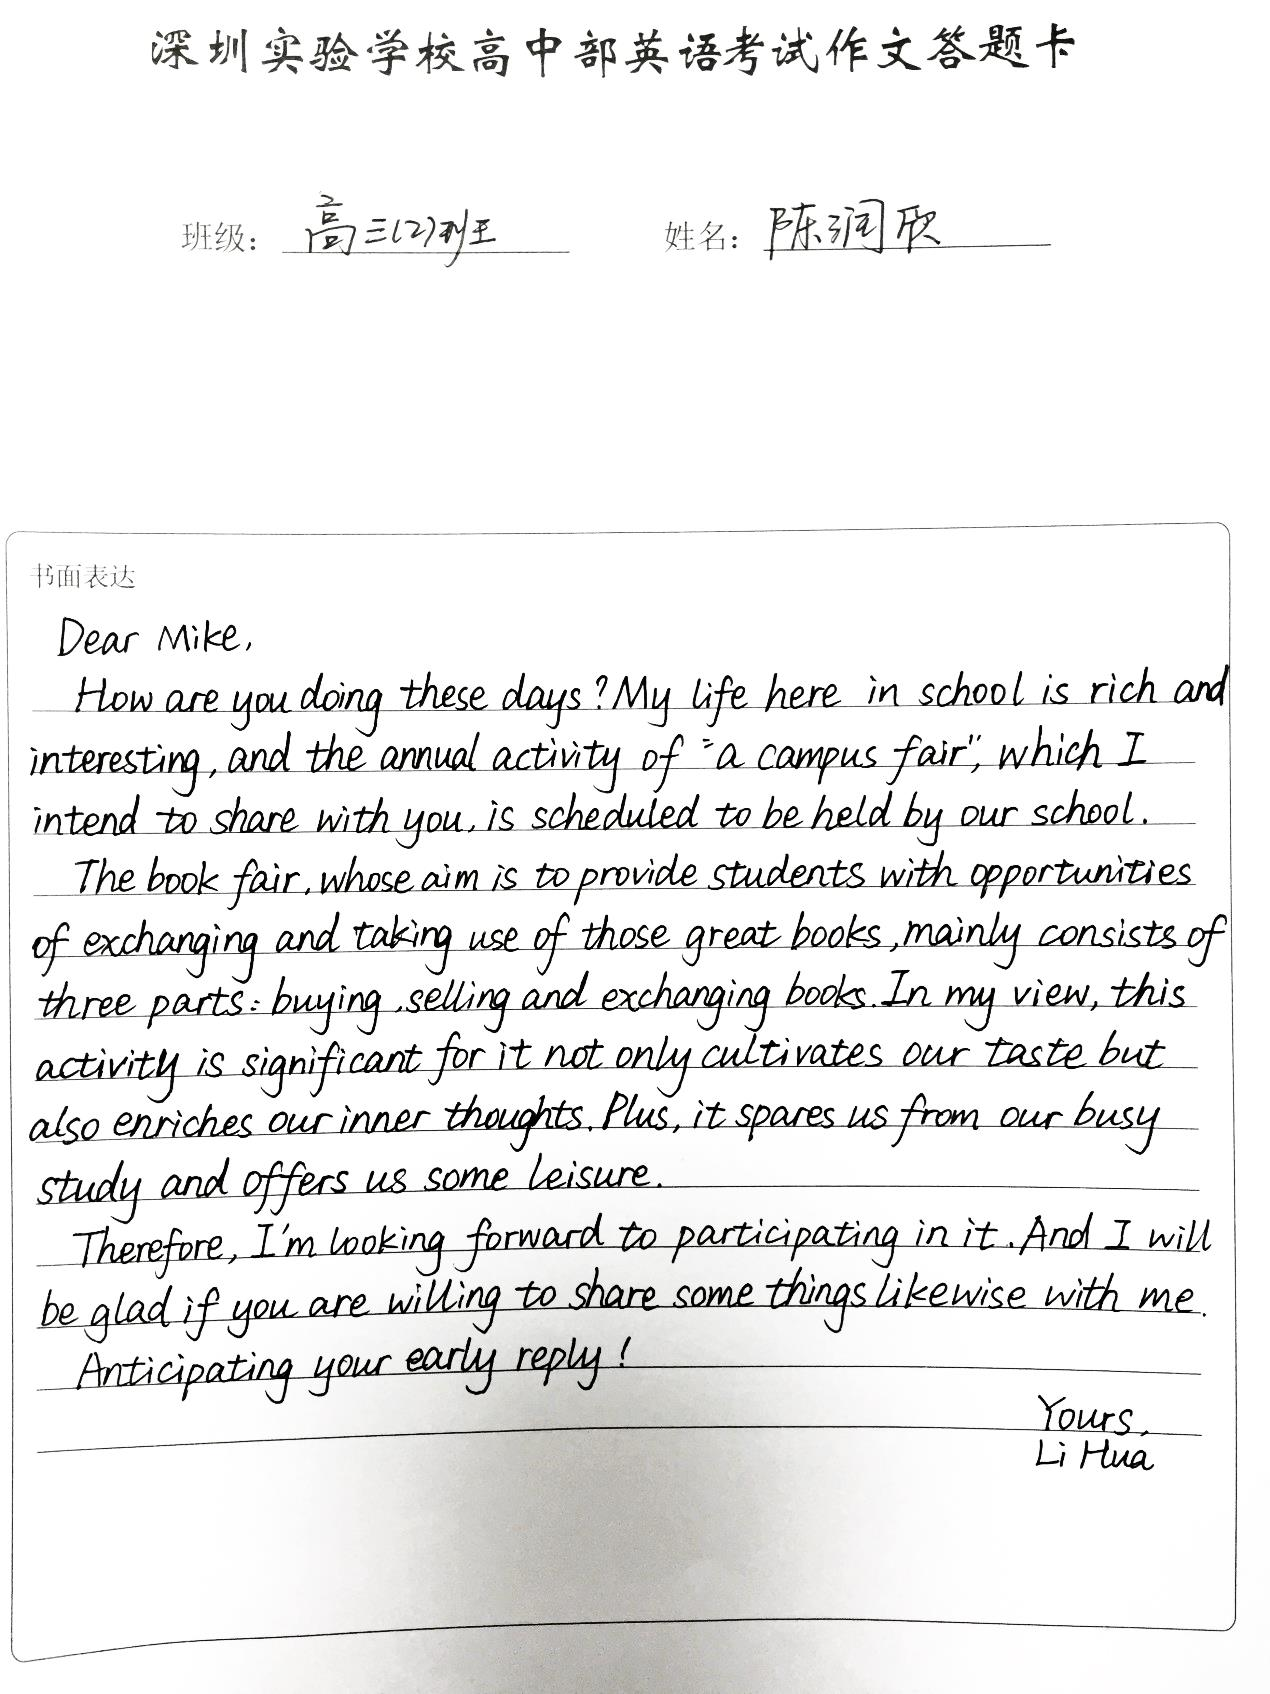 深圳实验学校高中部英语考试作文答题卡
班级： 高三(2)班 姓名： 陈润欣
书面表达
Dear Mike,
How are you doing these days? My life here in school is rich and
interesting, and the annual activity of "a campus fair", which I
intend to share with you, is scheduled to be held by our school.
The book fair, whose aim is to provide students with opportunities
of exchanging and taking use of those great books, mainly consists of
three parts: buying, selling and exchanging books. In my view, this
activity is significant for it not only cultivates our taste but
also enriches our inner thoughts. Plus, it spares us from our busy
study and offers us some leisure.
Therefore, I'm looking forward to participating in it. And I will
be glad if you are willing to share some things likewise with me.
Anticipating your early reply!
Yours,
Li Hua